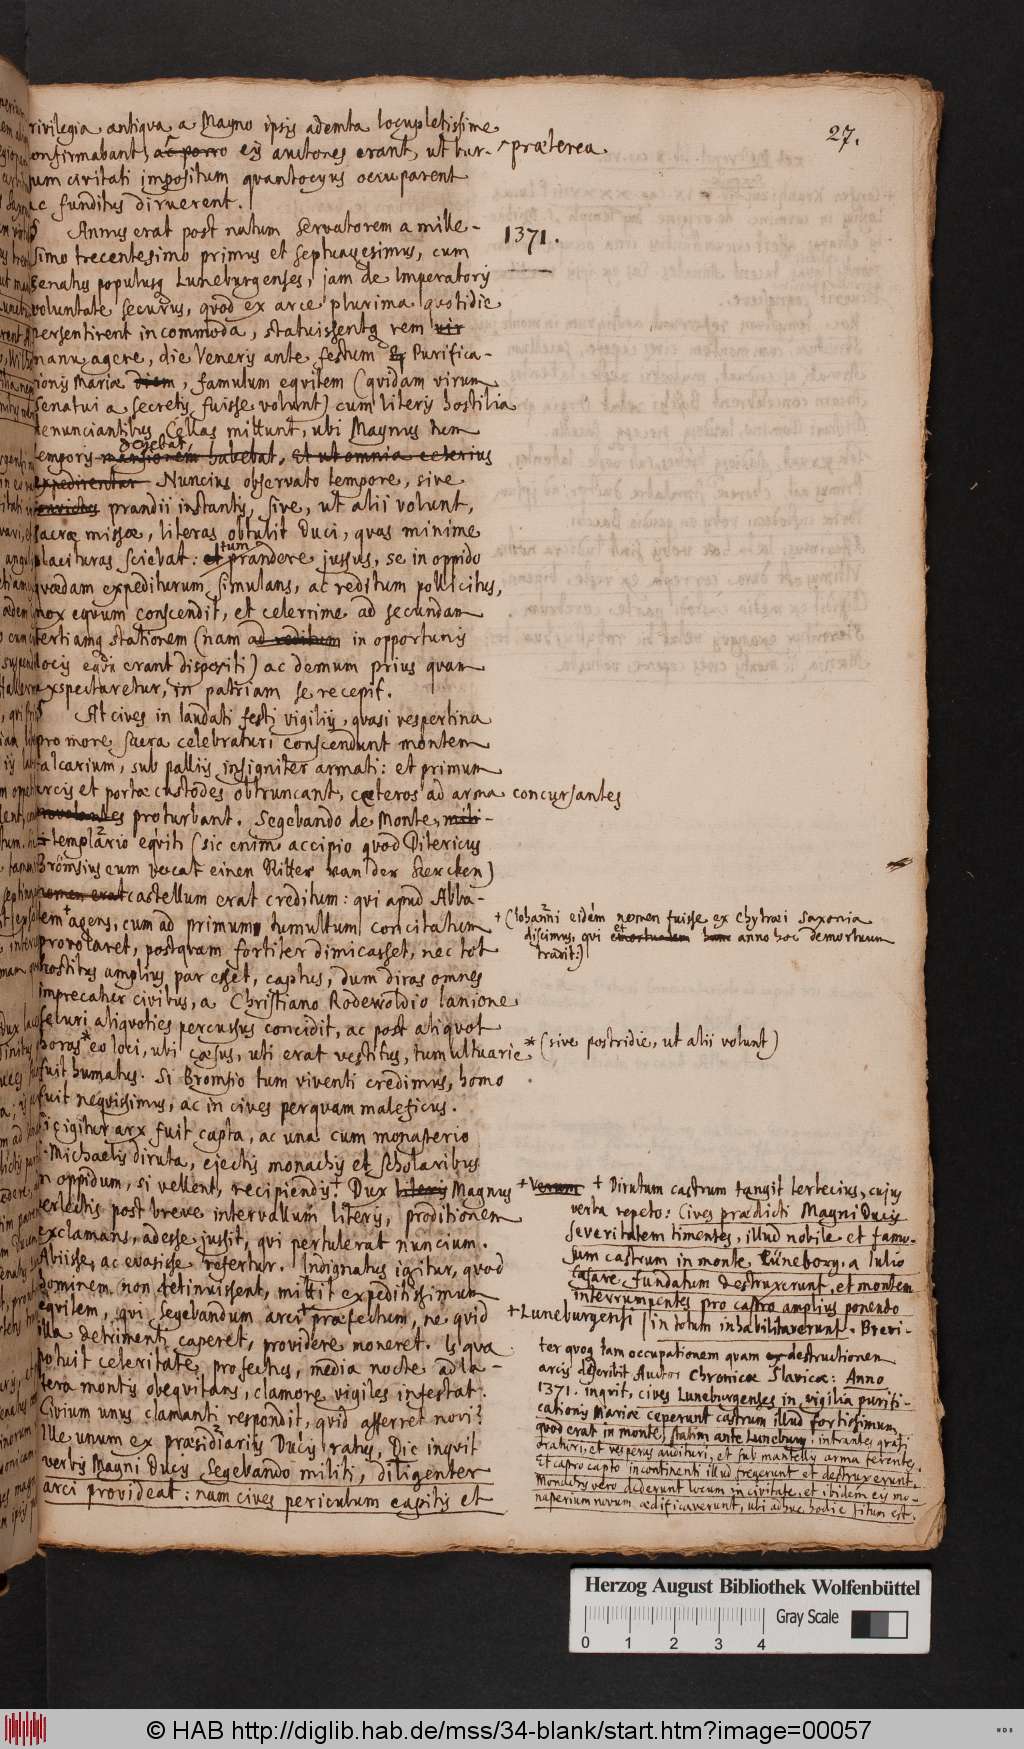 27.
rivilegia antiqva a Magno ipsis ademta locupletissime
onfirmabant, ac porro eis auctores erant, ut bur-
^præterea
sum civitati impositum qvantocyus occuparent
ac funditus diruerent.
Annus erat post natum Servatorem a mille-
1371.
simo trecentesimo primus et septuagesimus, cum
Senatus populusq Luneburgenses, jam de Imperatoris
voluntate securus, qvod ex arce plurima qvotidie
persentirent incommoda, statuissentq rem vir
manu agere, die Veneris ante festum Purifica-
ionis Mariæ diem, famulum eqvitem (qvidam virum
Senatui a secretis fuisse volunt) cum literis hostilia
enunciantibus Cellas mittunt, ubi Magnus tum
degebat,
emporis mansionem habebat, Et ut omnia celerius
expedirentur Nuncius observato tempore, sive
prandii instantis, sive, ut alii volunt,
sacræ missæ, literas obtulit Duci, qvas minime
placituras sciebat: et
tum
prandere jussus, se in oppido
qvædam expediturum simulans, ac reditum pollicitus,
mox eqvum conscendit, et celerrime ad secundam
tertiamq stationem (nam ad reditum in opportunis
locis eqvi erant dispositi) ac demum prius qvam
exspectaretur, in patriam se recepit.
At cives in laudati festi vigiliis, qvasi vespertina
pro more sacra celebraturi conscendunt montem
calcarium, sub palliis insigniter armati: et primum
arcis et portæ custodes obtruncant, cæteros ad arma
concursantes
provolantes proturbant. Segebando de Monte, mili-
templario eqviti (sic enim accipio qvod Ditericus
Brömsius eum vocat einen Ritter van der Kercken)
nomen erat castellum erat creditum: qvi apud Abba-
tem + agens, cum ad primum tumultum concitatum
+ (Iohanni eidem nomen fuisse ex Chytræi Saxonia
discimus, qvi et emortualem hanc anno hoc demortuum
tradit:)
provolaret, postqvam fortiter dimicasset, nec tot
hostibus amplius par esset, captus, dum diras omnes
imprecatur civibus, a Christiano Rodewoldio lanione
securi aliqvoties percussus concidit, ac post aliqvot
horas * eo loci, ubi cæsus, uti erat vestitus, tumultuarie
* (sive postridie, ut alii volunt)
fuit humatus. Si Bromsio tum viventi credimus, homo
fuit neqvissimus, ac in cives perqvam maleficus.
igitur arx fuit capta, ac una cum monasterio
S. Michaelis diruta, ejectis monachis et scholaribus
in oppidum, si vellent, recipiendis. + Dux literis Magnus
perlectis post breve intervallum literis, proditionem
exclamans, adesse jussit, qvi pertulerat nuncium.
Abiisse, ac evasisse refertur. Indignatus igitur, qvod
hominem non detinuissent, mittit expeditissimum
eqvitem, qvi Segebandum arci + præfectum, ne qvid
illa detrimenti caperet, providere moneret. Is qva
potuit celeritate profectus, media nocte ad la-
tera montis obeqvitans, clamore vigiles infestat.
Civium unus clamanti respondit, qvid afferret novi?
Ille, unum ex præsidiariis Ducis ratus, Dic inqvit
verbis Magni Ducis Segebando militi, diligenter
arci provideat: nam cives periculum capitis et
+ Verum + Dirutum castrum tangit Lerbecius, cujus
verba repeto: Cives prædicti Magni Ducis
severitatem timentes, illud nobile et famo-
sum castrum in monte Lüneborg, a Iulio
Cæsare fundatum destruxerunt, et montem
interrumpentes pro castro amplius ponendo
+ Luneburgensi
in totum inhabilitaverunt. Brevi-
ter qvoq tam occupationem qvam destructionem
arcis describit Auctor Chronicæ Slavicæ: Anno
1371. inqvit, cives Luneburgenses in vigilia purifi-
cationis Mariæ ceperunt castrum illud fortissimum,
qvod erat in monte, statim ante Luneburg, intrantes qvasi
oraturi, et vesperas audituri, et sub mantellis arma ferentes.
Et castro capto incontinenti illud fregerunt et destruxerunt,
Monachis vero dederunt locum in civitate, et ibidem eis mo-
nasterium novum ædificaverunt, ubi adhuc hodie situm est.
Herzog August Bibliothek Wolfenbüttel
Gray Scale
0 1 2 3 4
© HAB http://diglib.hab.de/mss/34-blank/start.htm?image=00057